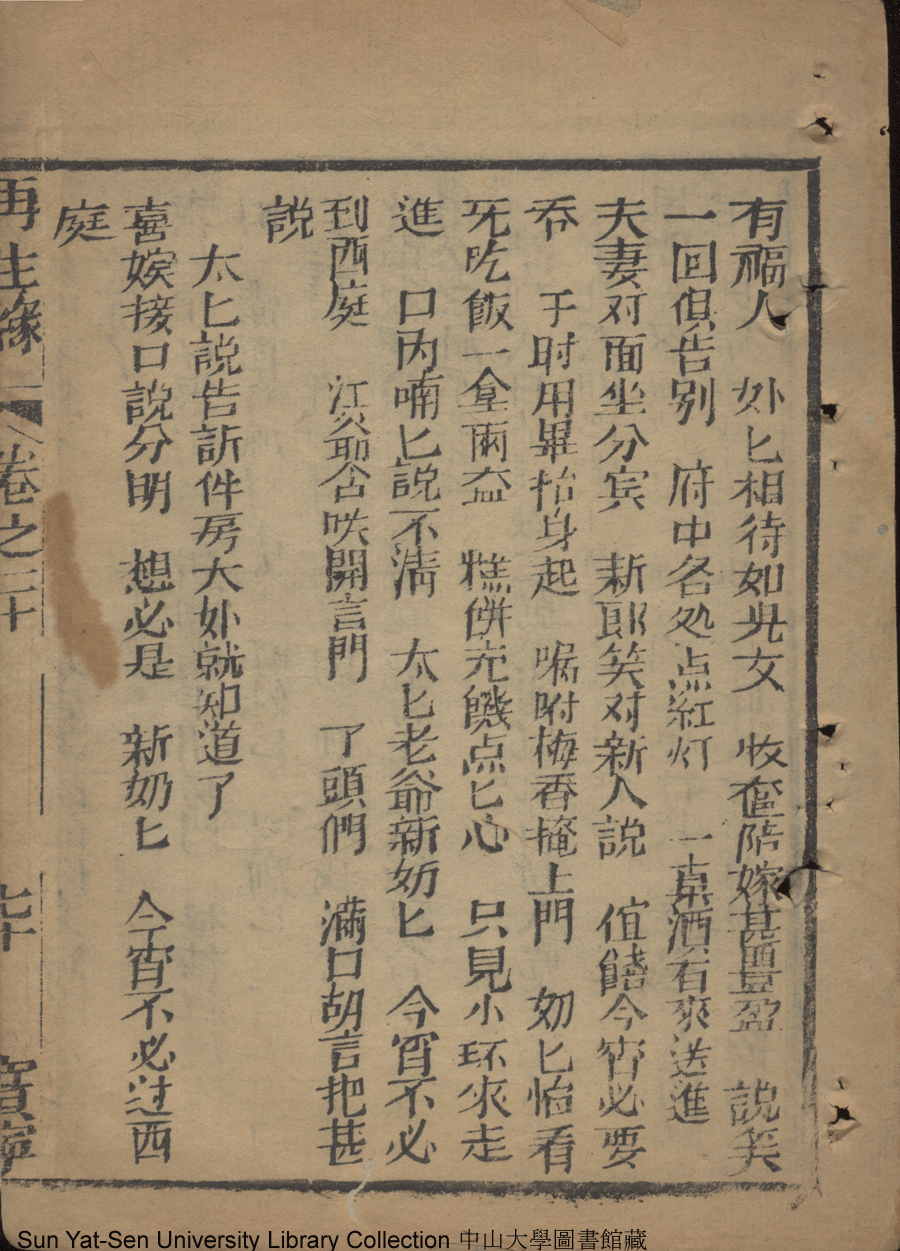 有福人　妳匕相待如児女　收奩陪嫁甚豊盈　説笑
一回俱告別　府中各処点紅灯　一桌酒肴來送進
夫妻对面坐分宾　新郎笑对新人説　饍今宵必要
吞　于时用畢抬身起　嘱咐梅香掩上門　匕怡看
吃飯一盒兩盃　糕餅充饑点匕心　只見小环來走
進　口内喃匕説不清　太匕老爺新奶匕　今宵不必
到西庭　开言門　了頭們　滿口胡言把甚
説
太匕説告訴件房大妳就知道了
喜嫔接口説分明　想必是　新奶匕　今宵不必过西
庭
再生緣　卷之二十　七十　寳寧
Sun Yat-Sen University Library Collection 中山大學圖書館藏